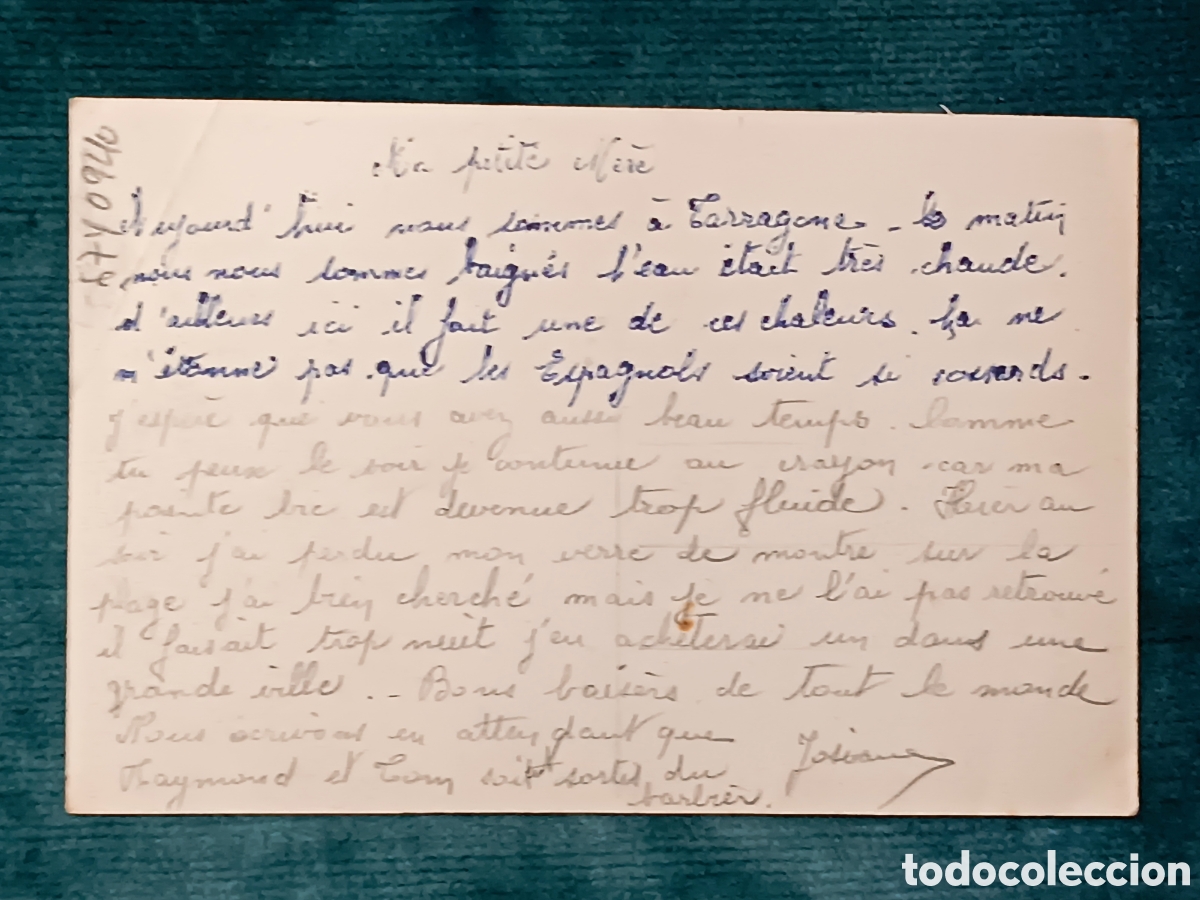 Ma petite Mère
Aujourd'hui nous sommes à Tarragone - le matin
nous nous sommes baignés l'eau était très chaude.
d'ailleurs ici il fait une de ces chaleurs. ça ne
m'étonne pas que les Espagnols soient si
j'espère que vous avez aussi beau temps. Comme
tu peux le voir je continue au crayon car ma
pointe bic est devenue trop fluide. Hier au
soir j'ai perdu mon verre de montre sur la
plage j'ai bien cherché mais je ne l'ai pas retrouvé
il faisait trop nuit j'en achèterai un dans une
grande ville. - Bons baisers de tout le monde
Nous écrivons en attendant que
Raymond et Tom soit sortes du
barbier.
Josiane
todocoleccion